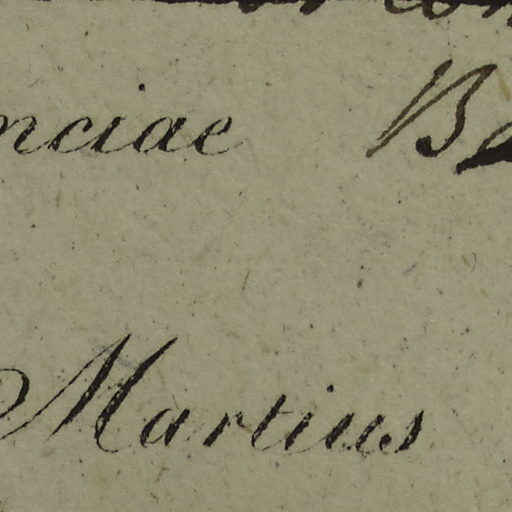 nciae B
Martius